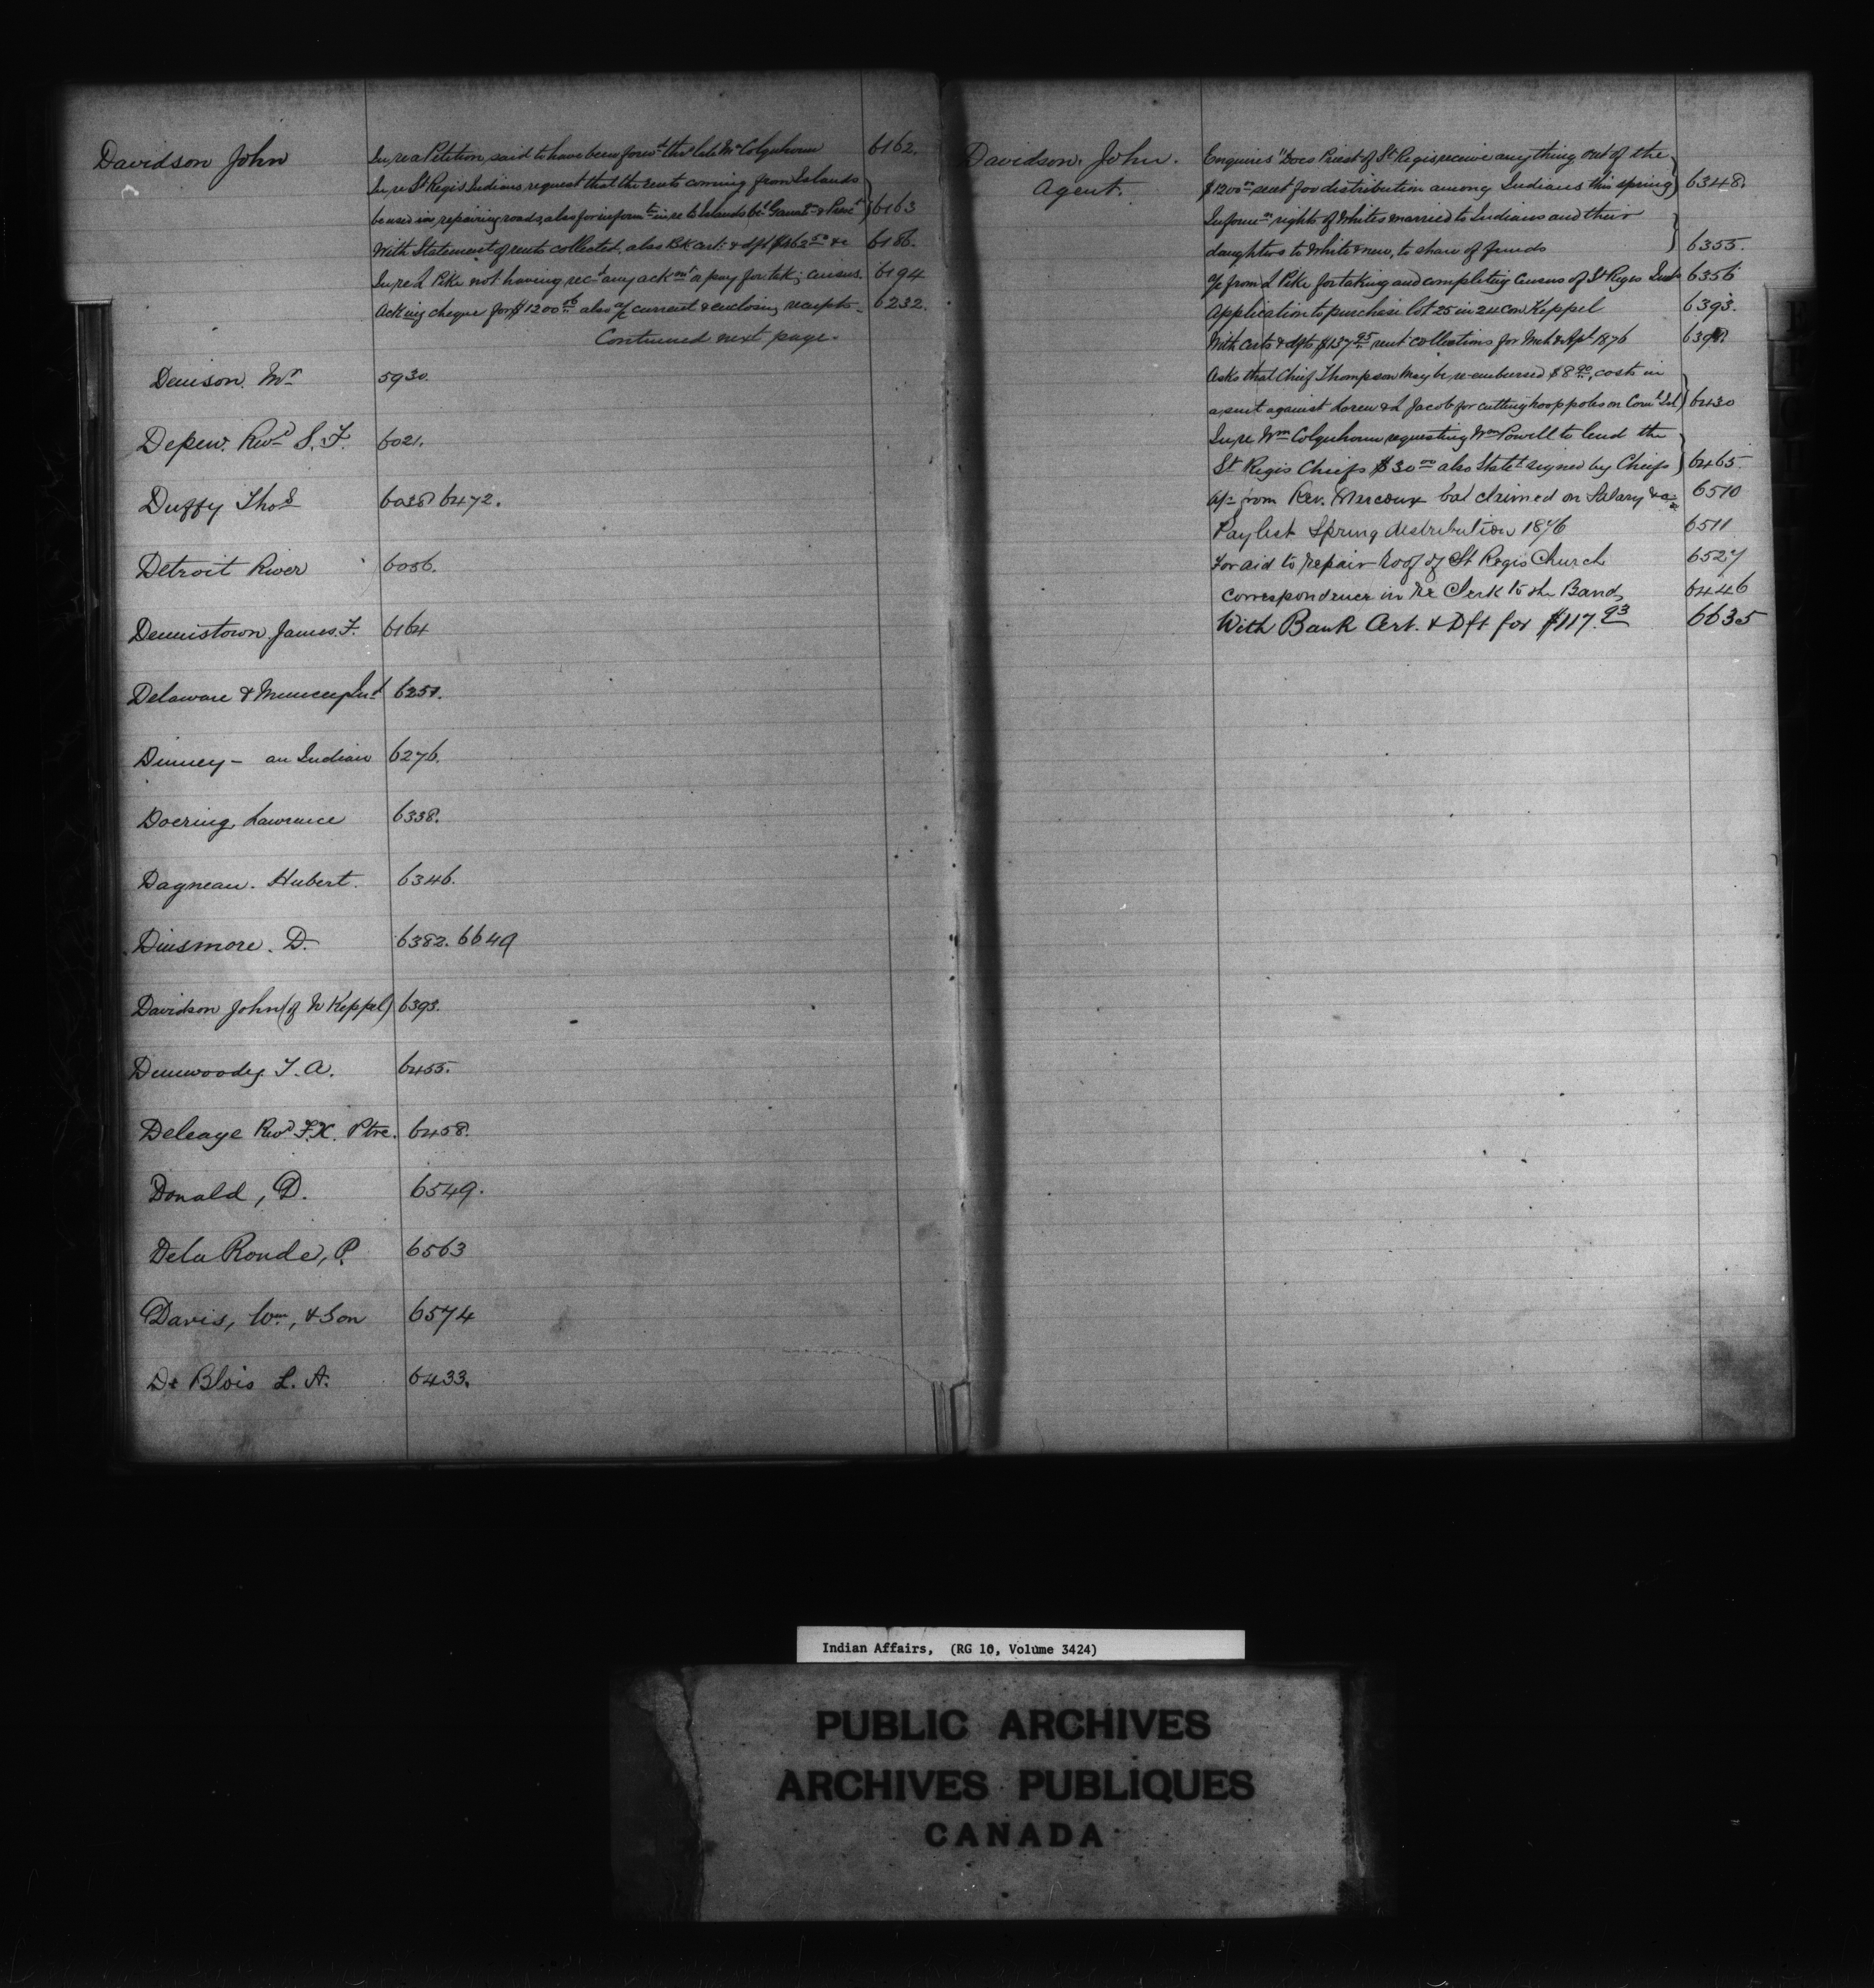 Davidson John
In re a Petition, said to have been forwd. thro' late Mr Colquhoun 6162.
In re St Regis Indians, request that the rents coming from Islands
be used in repairing roads, also for informtn. in re to Islands bet. & Presct 6163
With Statement of rents collected, also Bk cert: & dft $462 50 &c 6186.
In re L Pike not having recd any ackmt or pay for takg census. 6194
Acking cheque for $1200 also a/c current & enclosing receipts. 6232.
Continued next page.
Denison. Mr 5930.
Depew. Revd S. F. 6021.
Duffy Thos 6038 6472.
Detroit River 6056.
Dennistown James. F. 6164
Delaware & Muncey Inds 6251.
Dinney - an Indian 6276.
Doering Lawrence 6338.
Dagneau. Hubert. 6346.
Dinsmore. D. 6382. 6649
Davidson John (of N Keppel) 6393.
Dunwoody T. A. 6455.
Deleage Revd F.X. Ptre. 6458.
Donald, D. 6549.
De la Ronde, P. 6563
Davis, Wm, & Son 6574
De Blois L. A. 6433.
Davidson. John.
Agent.
Enquires "Does Priest of St Regis receive anything out of the
$1200 00 sent for distribution among Indians this spring 6348.
Informn rights of Whites married to Indians and their
daughters to White men, to share of funds 6355.
a/c from L Pike for taking and completing Census of St Regis Inds 6356
Application to purchase lot 25 in 24 Con Keppel 6393.
With certs & dfts $137 95 rent collections for Mch & Apl 1876
Asks that Chief Thompson may be re-embursed $8 90, costs in
a suit against Loren & L Jacob for cutting hoop poles on Corn. Isl 6430
In re Wm Colquhoun requesting Wm Powell to lend the
St Regis Chiefs $30 00 also Statet signed by Chiefs 6465.
a/c from Rev. Marcoux bal claimed on Salary &c 6510
Paylist Spring distribution 1876 6511
For aid to repair roof of St Regis Church 6527
Correspondence in re Clerk to the Band, 6446
With Bank Cert. & Dft for $117.93 6635
Indian Affairs, (RG 10, Volume 3424)
PUBLIC ARCHIVES
ARCHIVES PUBLIQUES
CANADA